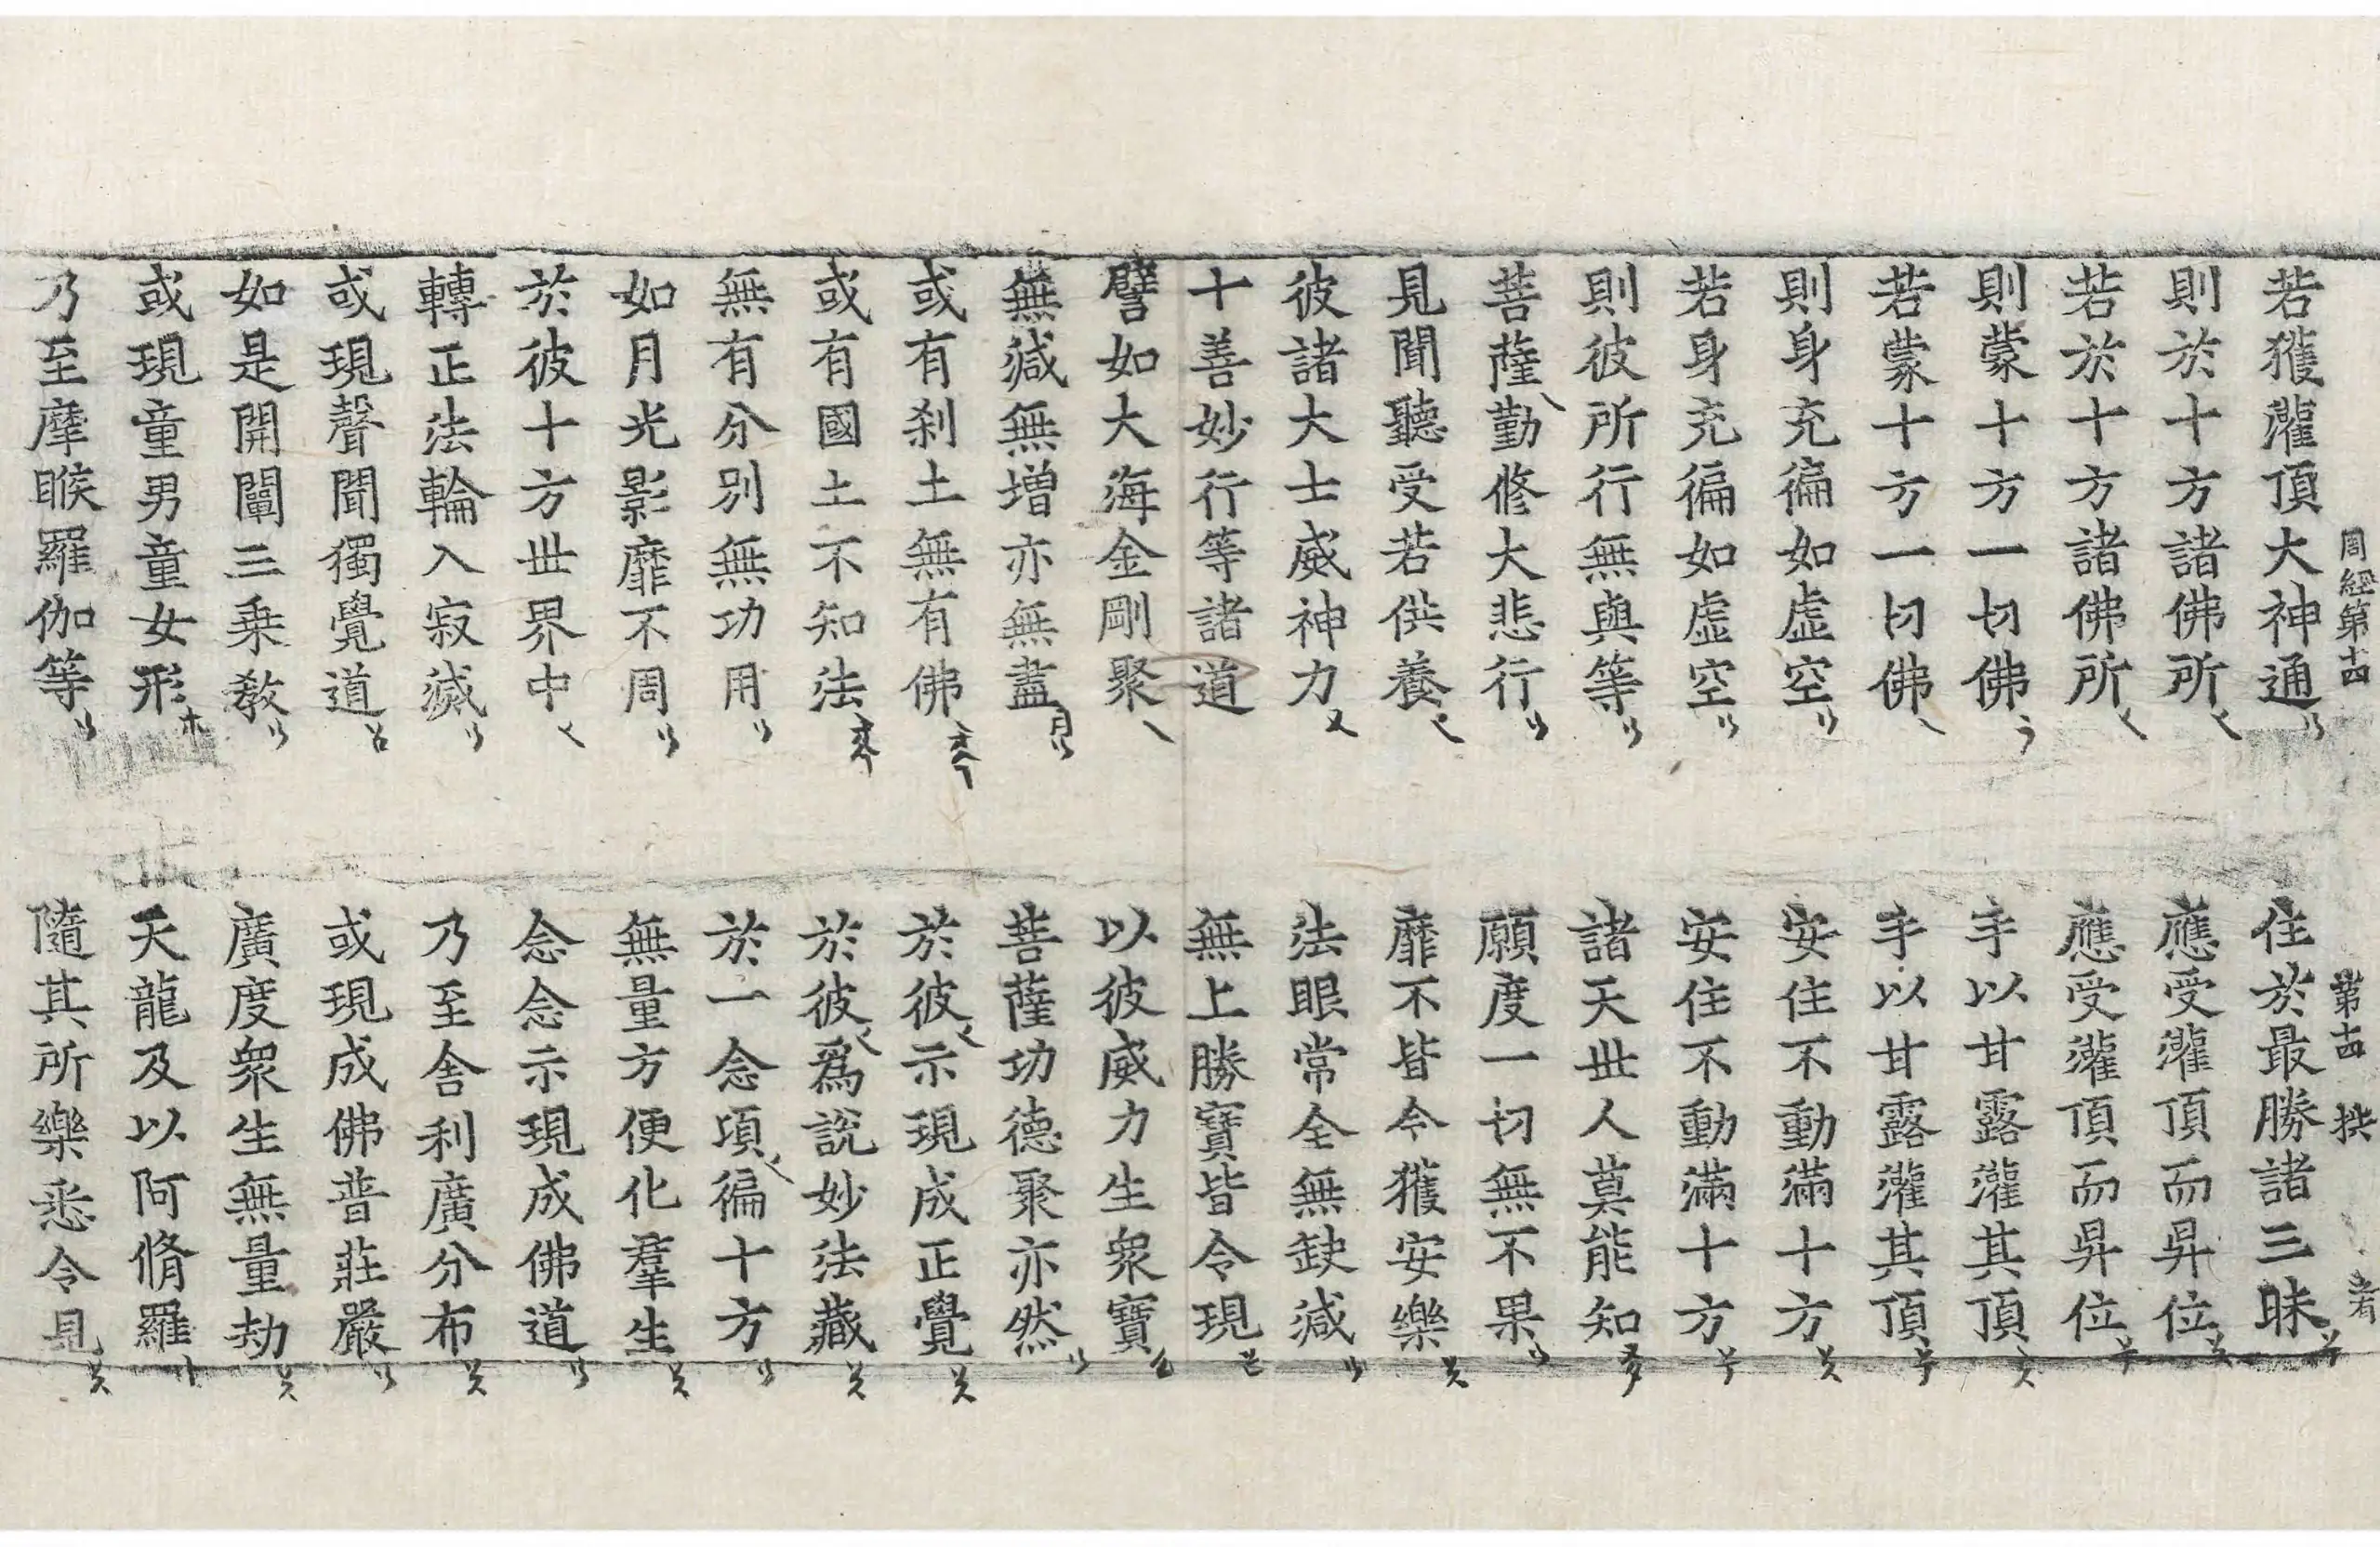 周經第十四 第十四 拱
若獲灌頂大神通 住於最勝諸三昧
則於十方諸佛所 應受灌頂而昇位
若於十方諸佛所 應受灌頂而昇位
則蒙十方一切佛 手以甘露灌其頂
若蒙十方一切佛 手以甘露灌其頂
則身充徧如虛空 安住不動滿十方
若身充徧如虛空 安住不動滿十方
則彼所行無與等 諸天世人莫能知
菩薩勤修大悲行 願度一切無不果
見聞聽受若供養 靡不皆令獲安樂
彼諸大士威神力 法眼常全無缺減
十善妙行等諸道 無上勝寶皆令現
譬如大海金剛聚 以彼威力生衆寶
無減無增亦無盡 菩薩功德聚亦然
或有刹土無有佛 於彼示現成正覺
或有國土不知法 於彼爲說妙法藏
無有分別無功用 於一念項徧十方
如月光影靡不周 無量方便化羣生
於彼十方世界中 念念示現成佛道
轉正法輪入寂滅 乃至舍利廣分布
或現聲聞獨覺道 或現成佛普莊嚴
如是開闡三乘敎 廣度衆生無量劫
或現童男童女形 天龍及以阿脩羅
乃至摩睺羅伽等 隨其所樂悉令見